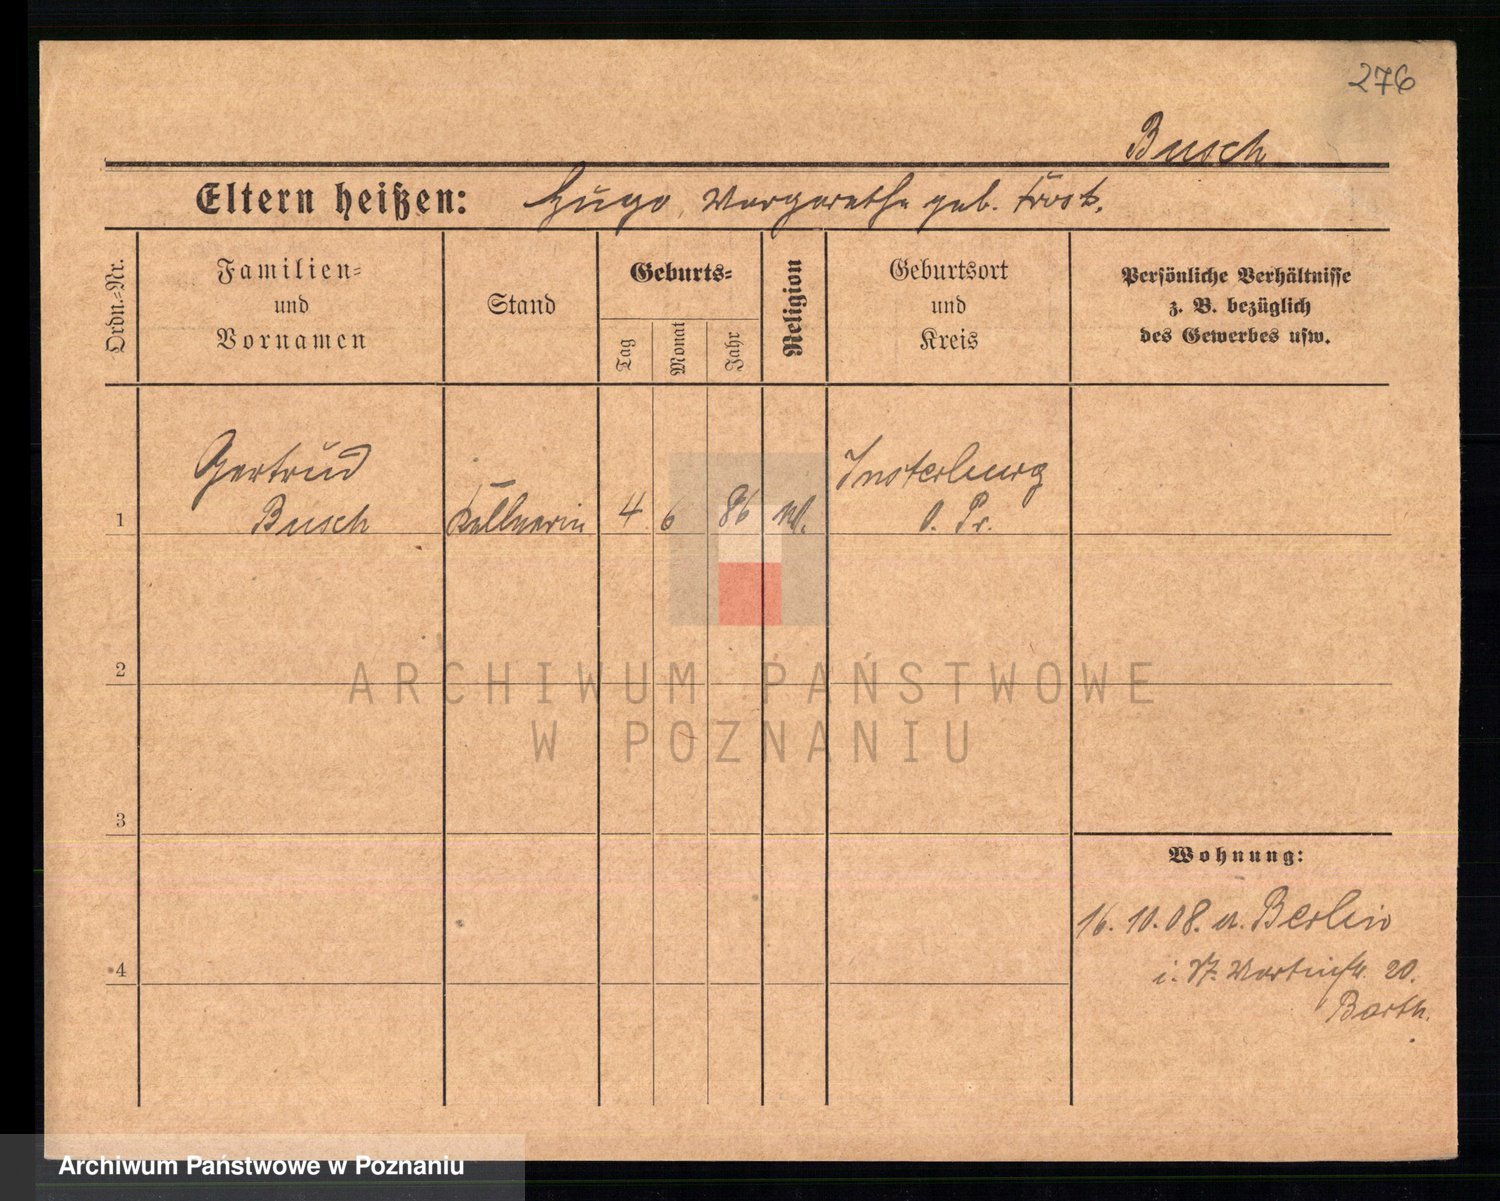 276
Busch
Eltern heißen: Hugo, Margarethe geb. Trost.
Ordn.=Nr.
Familien=
und
Vornamen
Stand
Geburts=
Tag
Monat
Jahr
Religion
Geburtsort
und
Kreis
Persönliche Verhältnisse
z. B. bezüglich
des Gewerbes usw.
Gertrud
Insterburg
1 Busch Kellnerin 4 6 86 O. Pr.
2
ARCHIWUM PAŃSTWOWE
W POZNANIU
3
Wohnung:
16. 10. 08. a. Berlin
4
i. St. Martinstr. 20.
Barth.
Archiwum Państwowe w Poznaniu